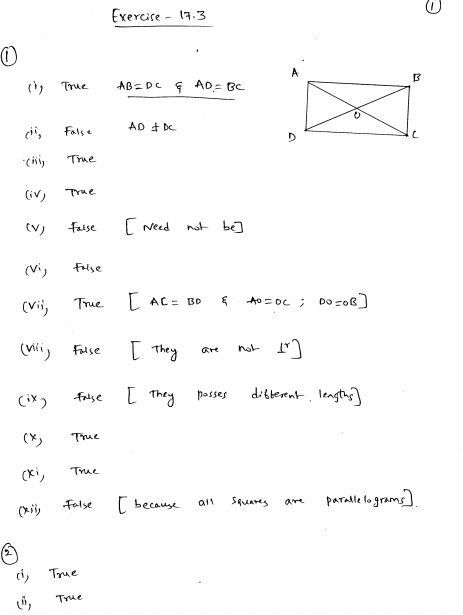 Exercise - 17.3
①
①
(i) True AB = DC & AD = BC
A
B
O
D
C
(ii) False AD ≠ DC
(iii) True
(iv) True
(v) False [Need not be]
(vi) False
(vii) True [AC = BD & AO = OC ; DO = OB]
(viii) False [They are not ⊥r]
(ix) False [They posses different lengths]
(x) True
(xi) True
(xii) False [because all squares are parallelograms].
②
(i) True
(ii) True